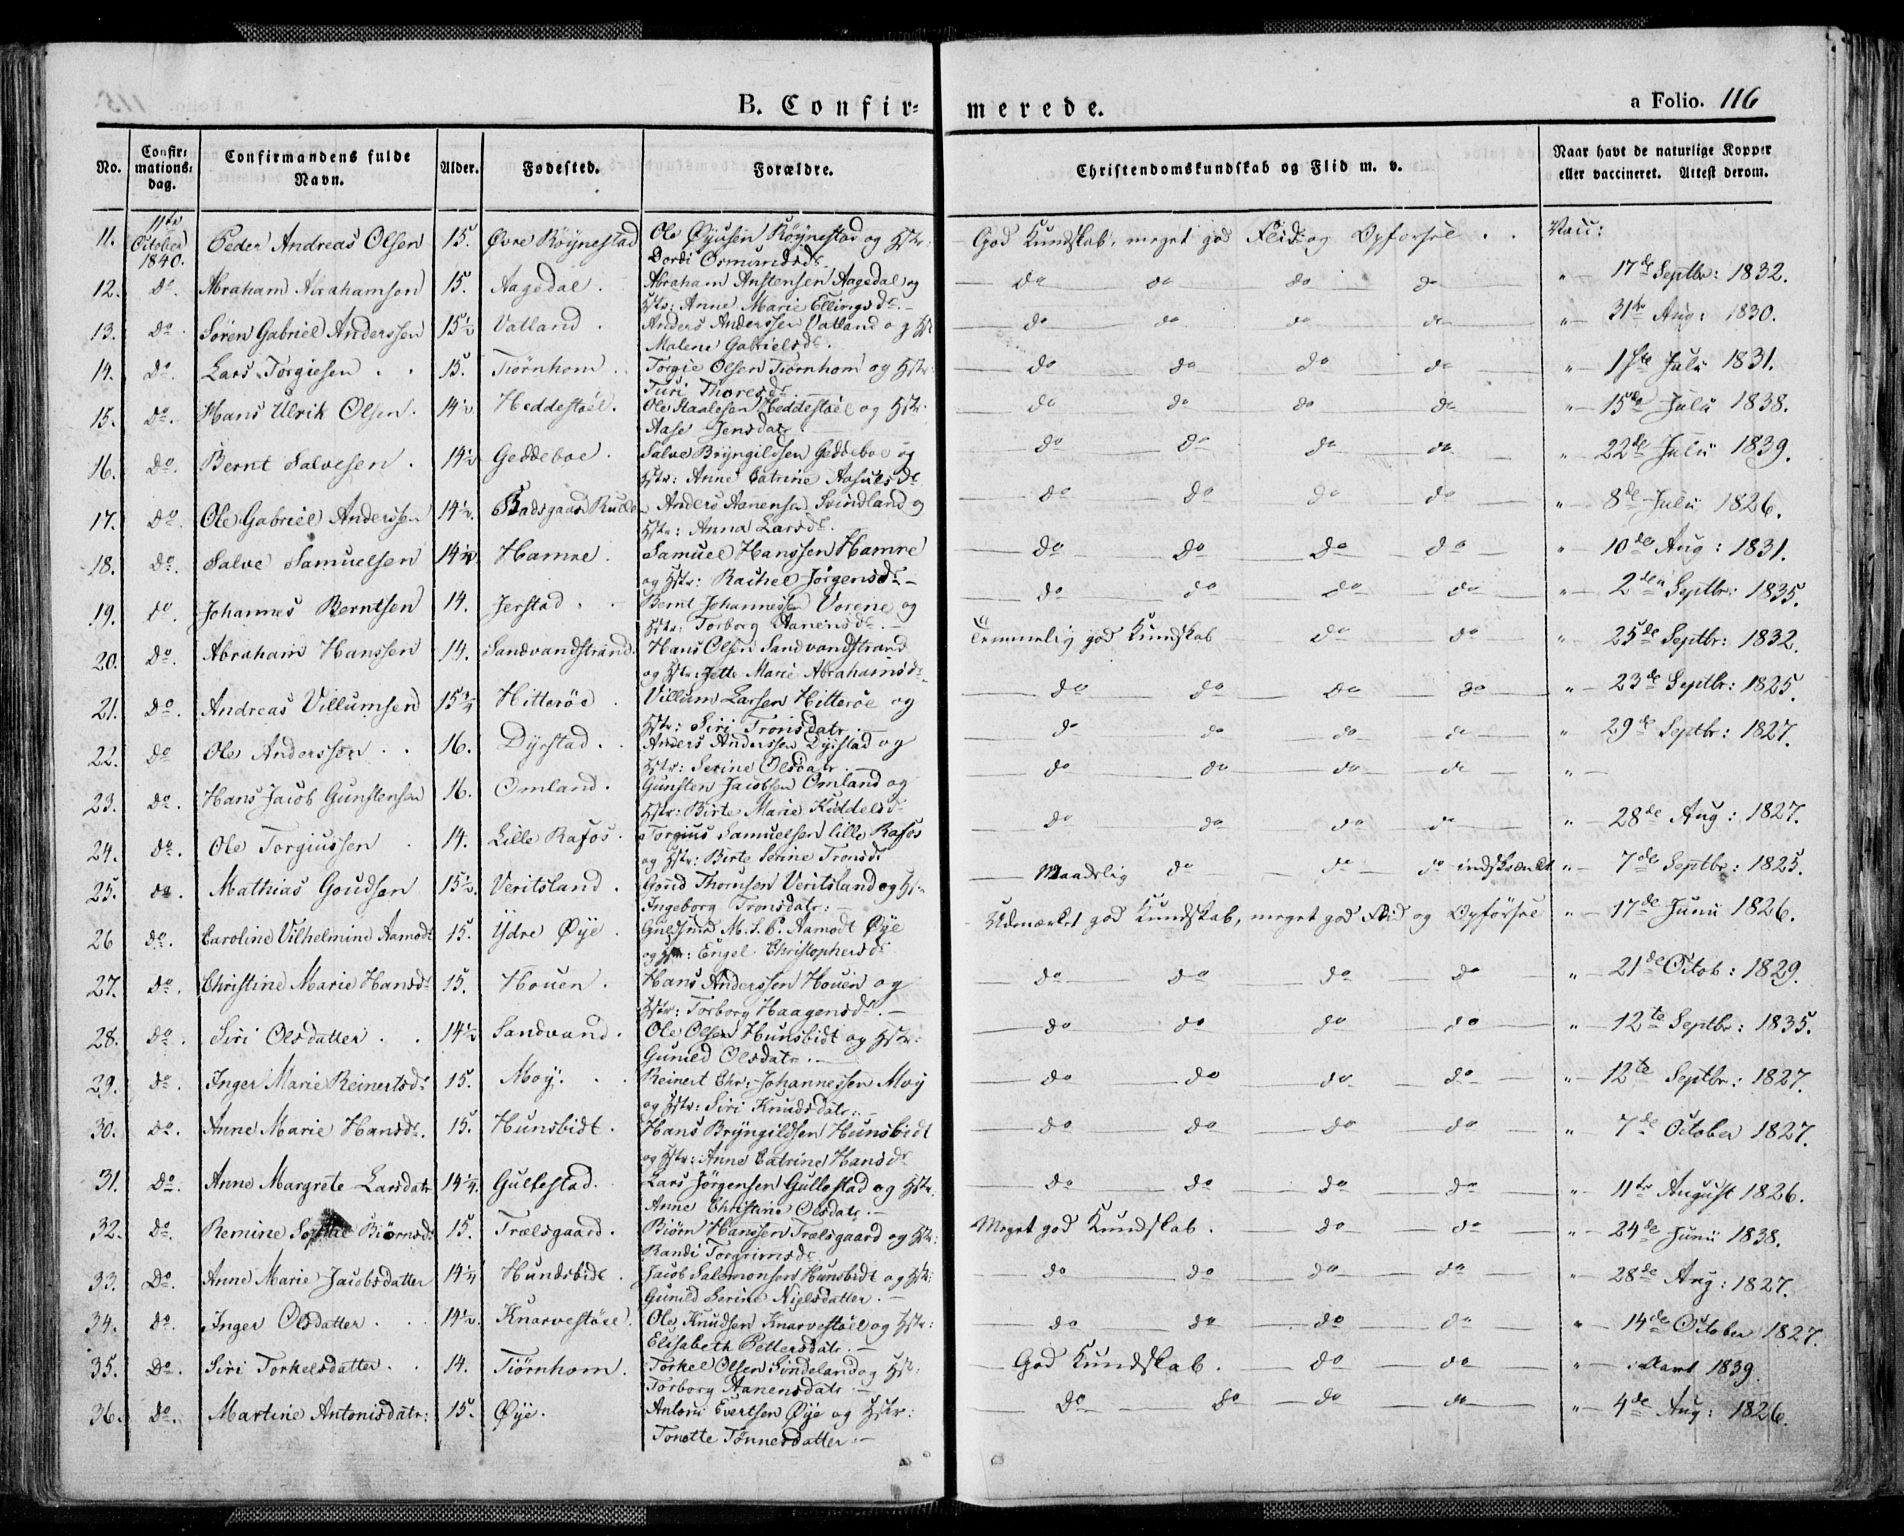 B. Confir= merede.
a Folio. 116
No. Confir= mations= dag. Confirmandens fulde Navn. Alder. Fødested. Forældre. Christendomskundskab og Flid m. v. Naar havt de naturlige Kopper eller vaccineret. Attest derom.
11. 11te October 1840. Peder Andreas Olsen 15. Øvre Röynestad Ole Øyusen Röynestad og Hstr: Dordi Osmundsd. God Kundskab, meget god Flid og Opförsel . . Vacc:
12. do Abraham Abrahamsen 15. Aagedal. Abraham Anstensen Aagedal og Hstr: Anne Marie Ellingsdr. — do do do do " — 17de Septbr: 1832.
13. do. Sören Gabriel Anderssen 15½ Vatland. Anders Anderssen Vatland og Hstr Malene Gabrielsdr. do do do do " — 31te Aug: 1830.
14. do. Lars Torgiesen . . 15. Tiörnhom . . Torgie Olsen Tiörnhom og Hstr: Turi Thoresdr do do do do " — 1ste Julii 1831.
15. do. Hans Ulrik Olsen. 14½ Heddestöel. Ole Staalesen Heddestöel og Hstr: Aase Jensdatr. — do do do do " — 15de Julii 1838.
16. do. Bernt Salvesen . 14½ Geddeboe . Salve Bryngildsen Geddeboe og Hstr: Anne Catrine Aasulsdr do do do do " — 22de Julii 1839.
17. do. Ole Gabriel Anderssen 14½. Anders Aanensen Svindland og Hstr: Anna Larsdr. do do do do " — 8de Julii 1826.
18. do. Salve Samuelsen 14½ Hamre. Samuel Hanssen Hamre og Hstr: Rachel Jörgensdr — do do do do " — 10de Aug: 1831.
19. do Johannes Berntsen 14. Jerstad . — Bernt Johannessen Vorene og Hstr: Torborg Aanensdr. — do do do do " — 2den Septbr: 1835.
20. do. Abraham Hanssen 14. Sandvandstrand. Hans Olsen Sandvandstrand og Hstr: Jette Marie Abrahamsdr Temmelig god Kundskab do do " 25de Septbr: 1832.
21. do. Andreas Villumsen 15¾ Hitteröe . Villum Larsen Hitteröe og Hstr: Siri Tronsdatr do do do do " — 23de Septbr: 1825.
22. do Ole Anderssen . . 16. Dyrstad. . Anders Anderssen Dyrstad og Hstr: Serine Olsdatr. — do do do do " 29de Septbr: 1827.
23. do. Hans Jacob Gunstensen 16. Omland. Gunsten Jacobsen Omland og Hstr: Birte Marie Kiddelsdr do do do do " —
24. do. Ole Torgiussen . 14. Lille Rafos . Torgius Samuelsen lille Rafos og Hstr: Birte Serine Tronsdr do do do do " 28de Aug: 1827.
25. do. Mathias Goudsen 15½. Veritsland . Goud Thomsen Veritsland og Hstr Ingeborg Tronsdatr: — — Maadelig do do do indskrænkt " — 7de Septbr: 1825.
26 do. Caroline Vilhelmine Aamodt 15. Ydre Øye . Guldsmed M. S. P. Aamodt Øye og Hstr: Engel Christophersdr Udmærket god Kundskab, meget god Flid og Opförsel " — 17de Junii 1826.
27. do. Christine Marie Hansdr. 15. Houen . Hans Anderssen Houen og Hstr: Torborg Haagensdr. — do do do do " — 21de Octob: 1829.
28. do. Siri Olsdatter . . 14½ Sandvand . Ole Olsen Hunsbidt og Hstr: Gunild Olsdatr . — do do do do " — 12te Septbr: 1835.
29. do. Inger Marie Reinertsdr 15. Moy. . . Reinert Chr: Johannessen Moy og Hstr: Siri Knudsdatr: — do do do do " — 12te Septbr: 1827.
30. do. Anne Marie Hansdr. 15. Hunsbidt . Hans Bryngildsen Hunsbidt og Hstr: Anne Catrine Hansdr do do do do " — 7de October 1827.
31. do. Anne Margrete Larsdatr 14¼. Gullestad. Lars Jörgensen Gullestad og Hstr. Anne Christine Olsdatr. — do do do do " — 11te August 1826.
32. do. Remine Sophie Biörnsdr 15. Trælsgaard. Biörn Hanssen Trælsgaard og Hstr: Randi Torgrimsdr Meget god Kundskab . do do " — 24de Junii 1838.
33. Do. Anne Marie Jacobsdatter 14¼ Hundsbidt . Jacob Salomonsen Hunsbidt og Hstr: Gunild Serine Nielsdatter. — do do do do " — 28de Aug: 1827.
34. do. Inger Olsdatter . . 14½. Knarvestöel. Ole Knudsen Knarvestöel og Hstr: Elisabeth Pettersdatr. — do do do do " — 14de October 1827.
35. Do. Siri Torkelsdatter. . 14. Tiörnhom. Torkel Olsen Sindeland og Hstr: Torborg Aanensdatr — God Kundskab . do do " 1839.
36. do. Martine Antonisdatr: 15. Øye. Antoni Evertsen Øye og Hstr: Tonette Tönnesdatter — do do do do " — 4de Aug: 1826.